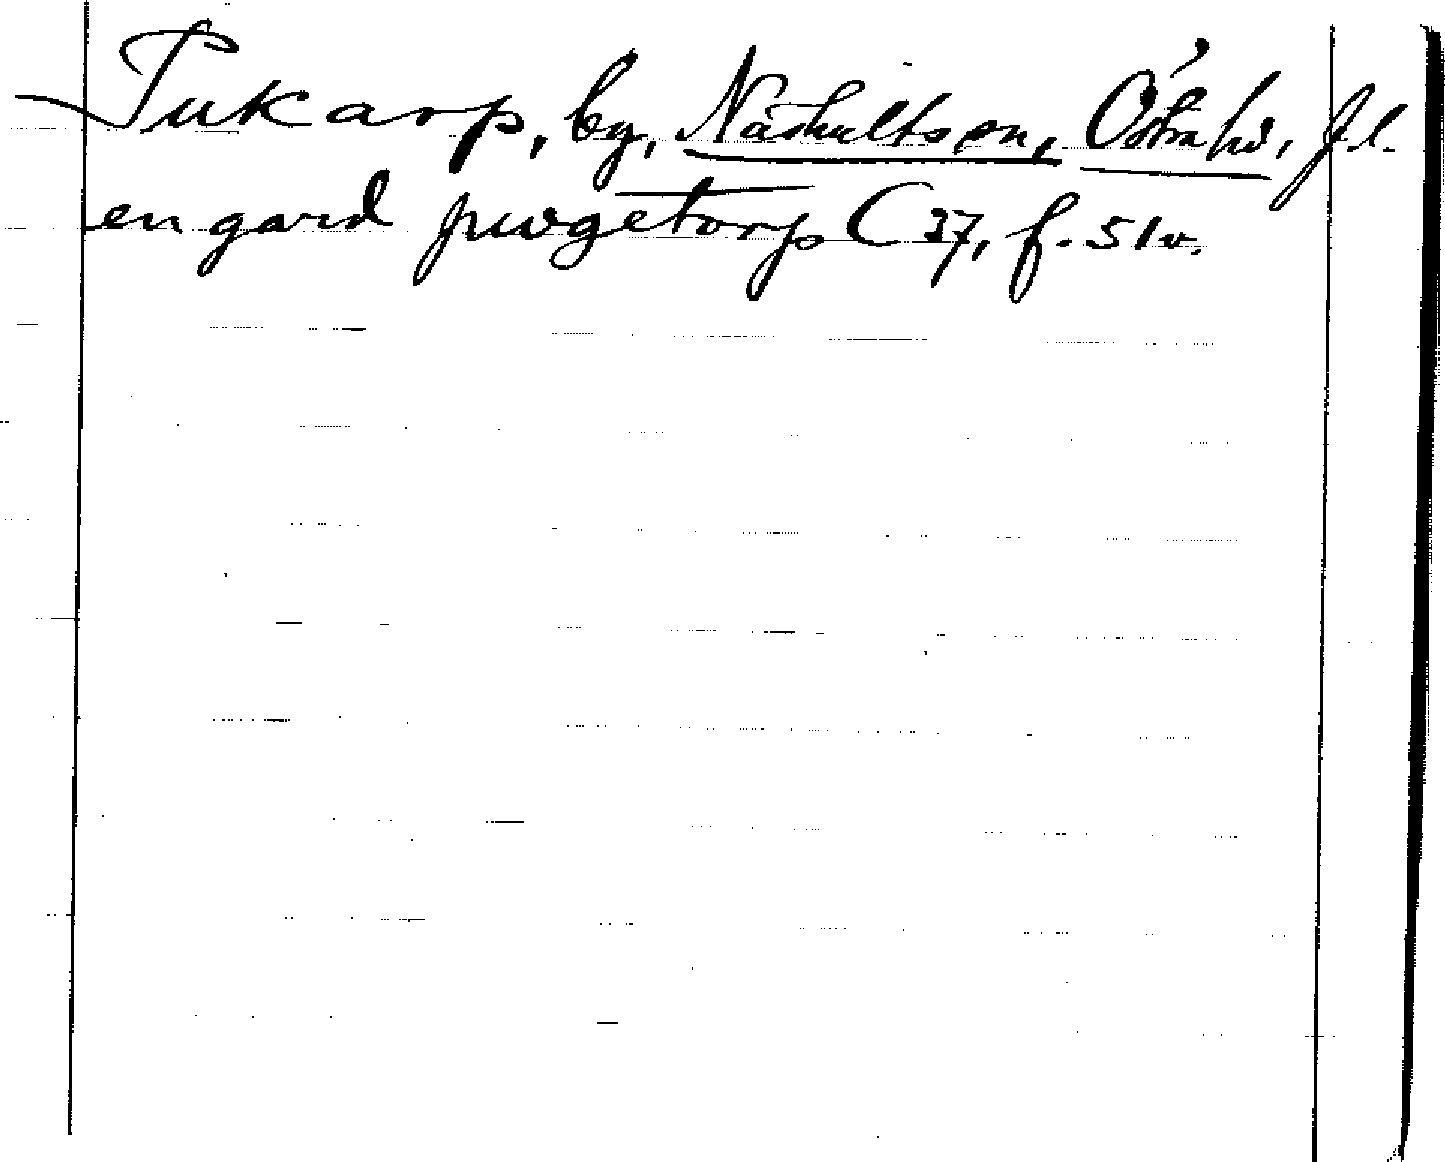 Tukarp, by, Näshults sn, Östra hd, Jl.
en gard puvgetorp C 37, f. 51v.